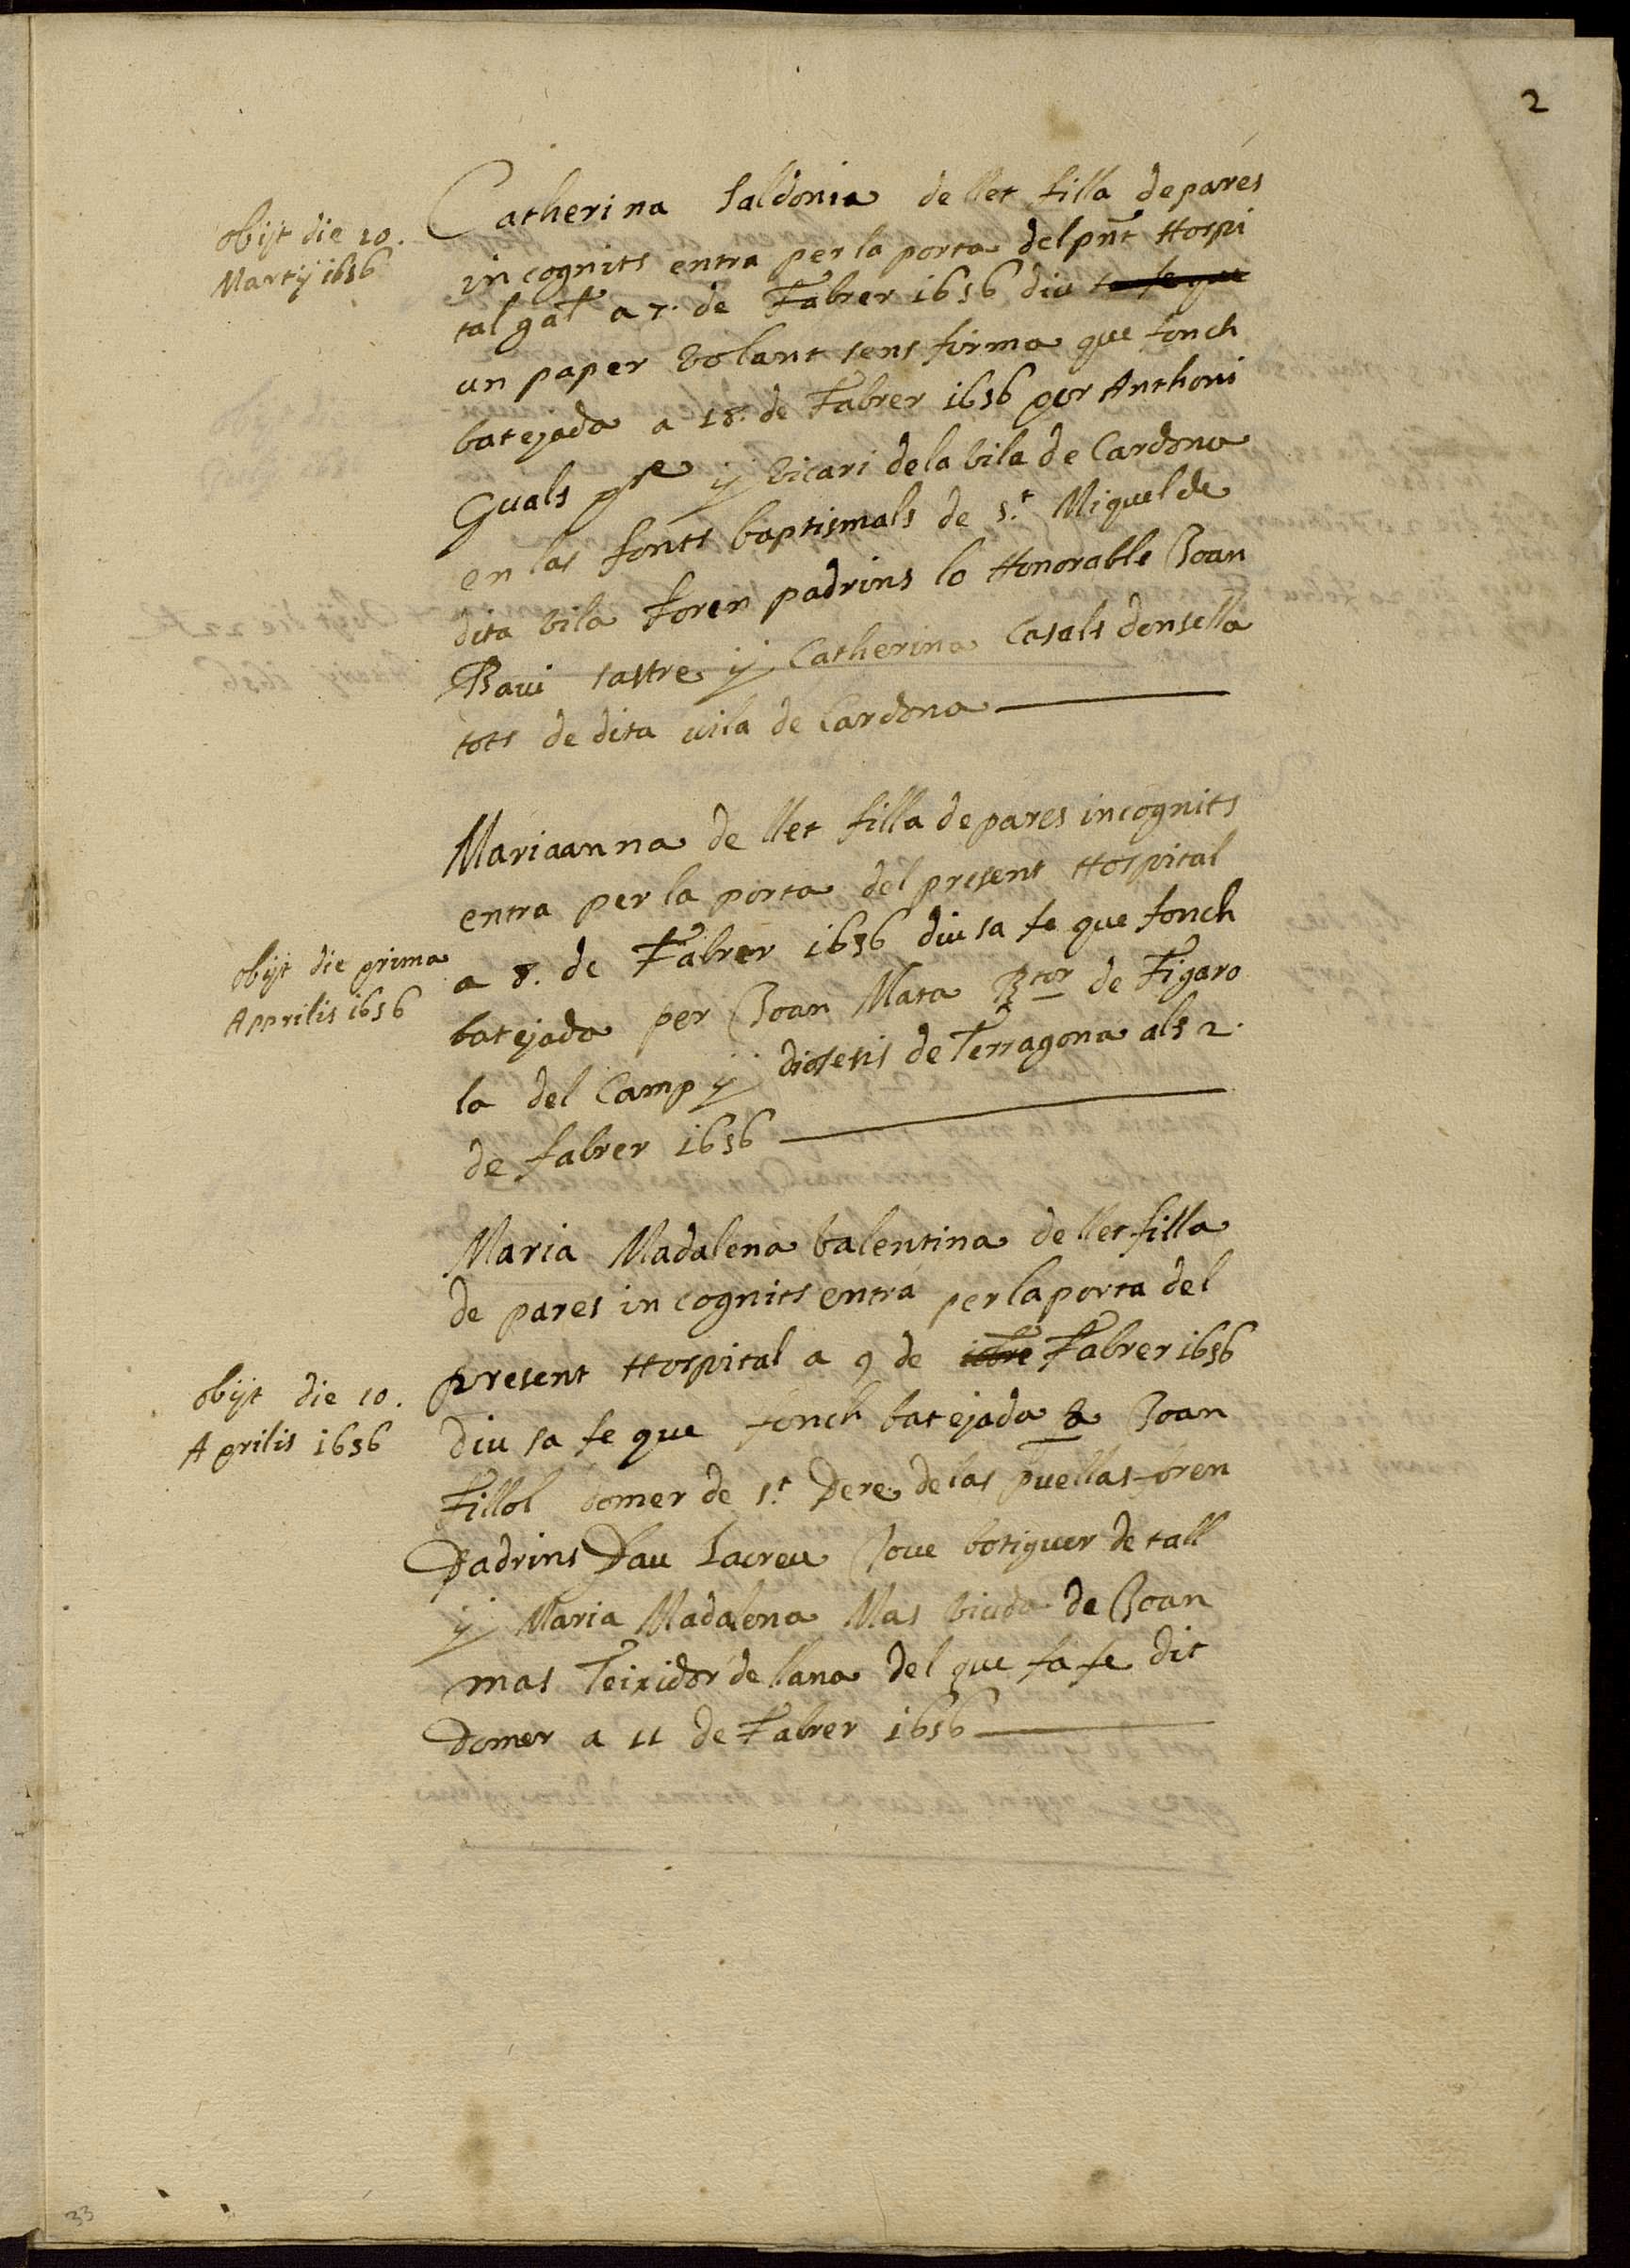 2
obijt die 10.
Martij 1656
Catherina Saldonia de llet filla de pares
in cognits entra per la porta del pnt Hospi
tal gal a 7. de Fabrer 1656 diu sa fe que
un paper bolant sens firma que fonch
batejada a 18. de Fabrer 1656 per Anthoni
Guals pre y bicari de la bila de Cardona
en las fonts baptismals de St. Miquel de
dita bila foren padrins lo Honorable Joan
Baui sastre y Catherina Casals donsella
tots de dita uila de Cardona
obijt die prima
Apprilis 1656
Mariaanna de llet filla de pares incognits
entra per la porta del present Hospital
a 8. de Fabrer 1656 diu sa fe que fonch
batejada per Joan Mata Rtor de Figaro
la del Camp y diosesis de Terragona als 2.
de fabrer 1656
obijt die 10.
Aprilis 1656
Maria Madalena balentina de llet filla
de pares in cognits entra per la porta del
present Hospital a 9 de Fabrer 1656
Diu sa fe que fonch batejada Joan
Fillol domer de St. Pere de las puellas foren
Padrins Pau Lacreu Joue botiguer de tall
y Maria Madalena Mas biuda de Joan
mas Teixidor de llana del que fa fe dit
Domer a 11 de Fabrer 1656
33